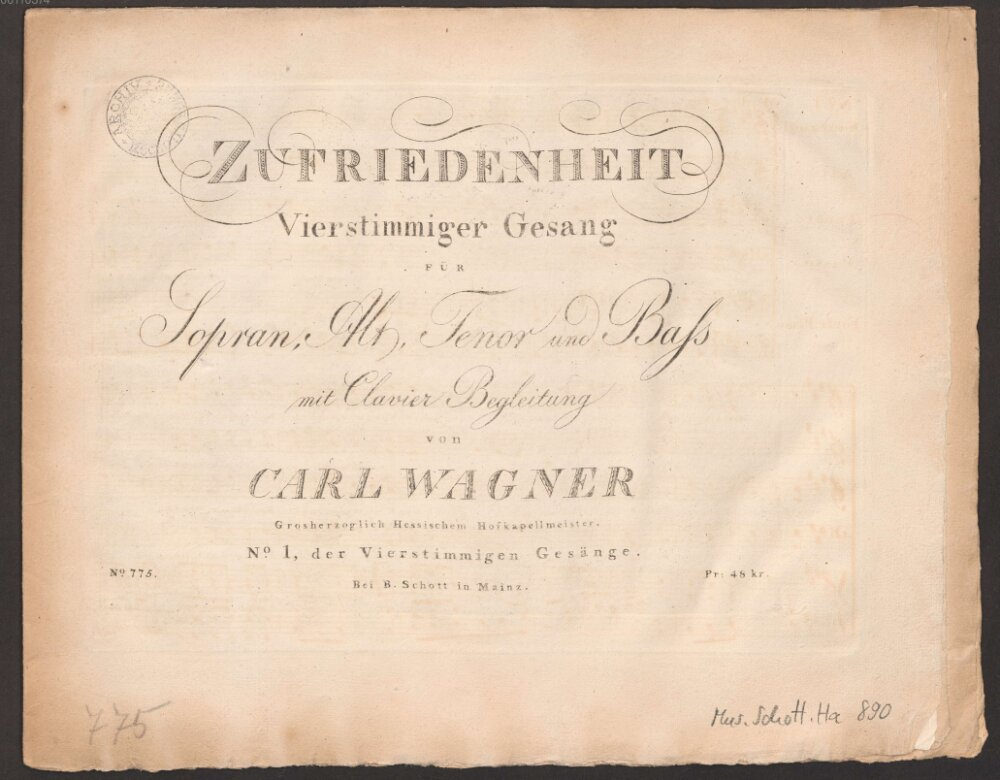 ARCHIV
ZUFRIEDENHEIT
Vierstimmiger Gesang
FÜR
Sopran, Alt, Tenor und Baſs
mit Clavier Begleitung
von
CARL WAGNER
Grosherzoglich Hessischem Hofkapellmeister.
No 1, der Vierstimmigen Gesänge.
No 775.
Pr: 48 kr.
Bei B. Schott in Mainz.
775
Mus. Schott. Ha 890